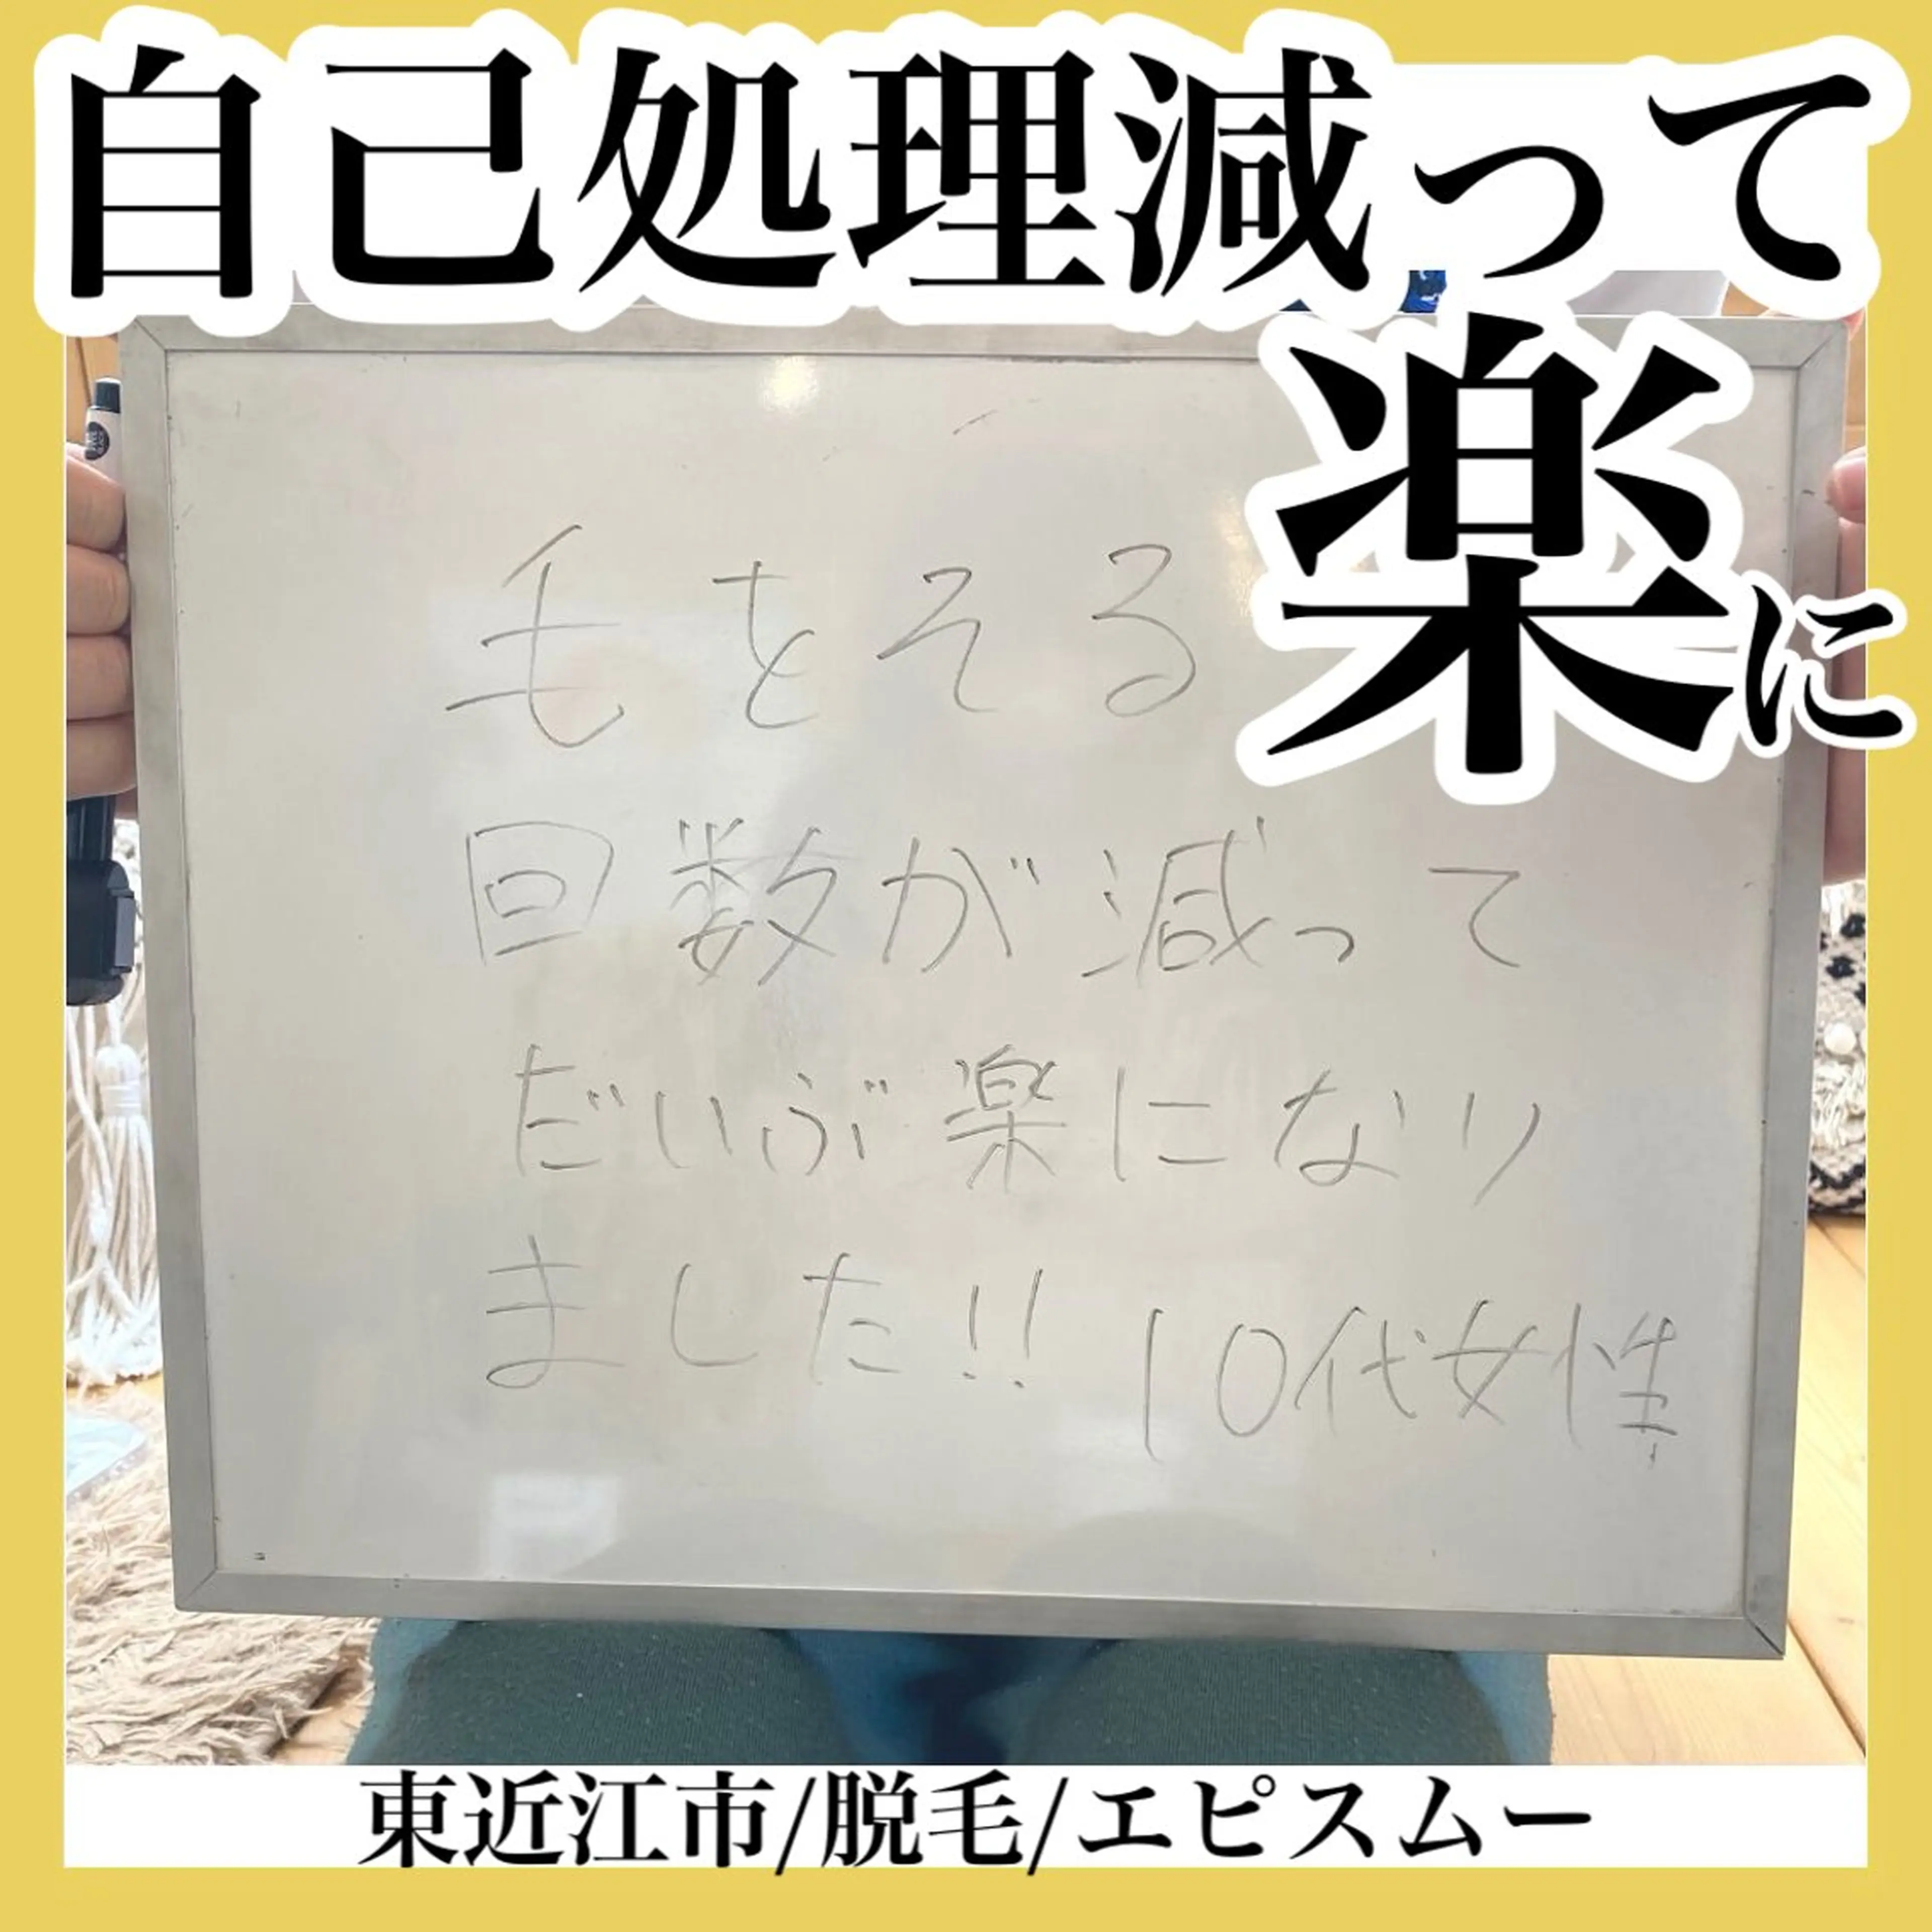 自己処理減って
楽に
毛をそる
回数が減って
だいぶ楽になり
ました!!
10代女性
東近江市/脱毛/エピスムー